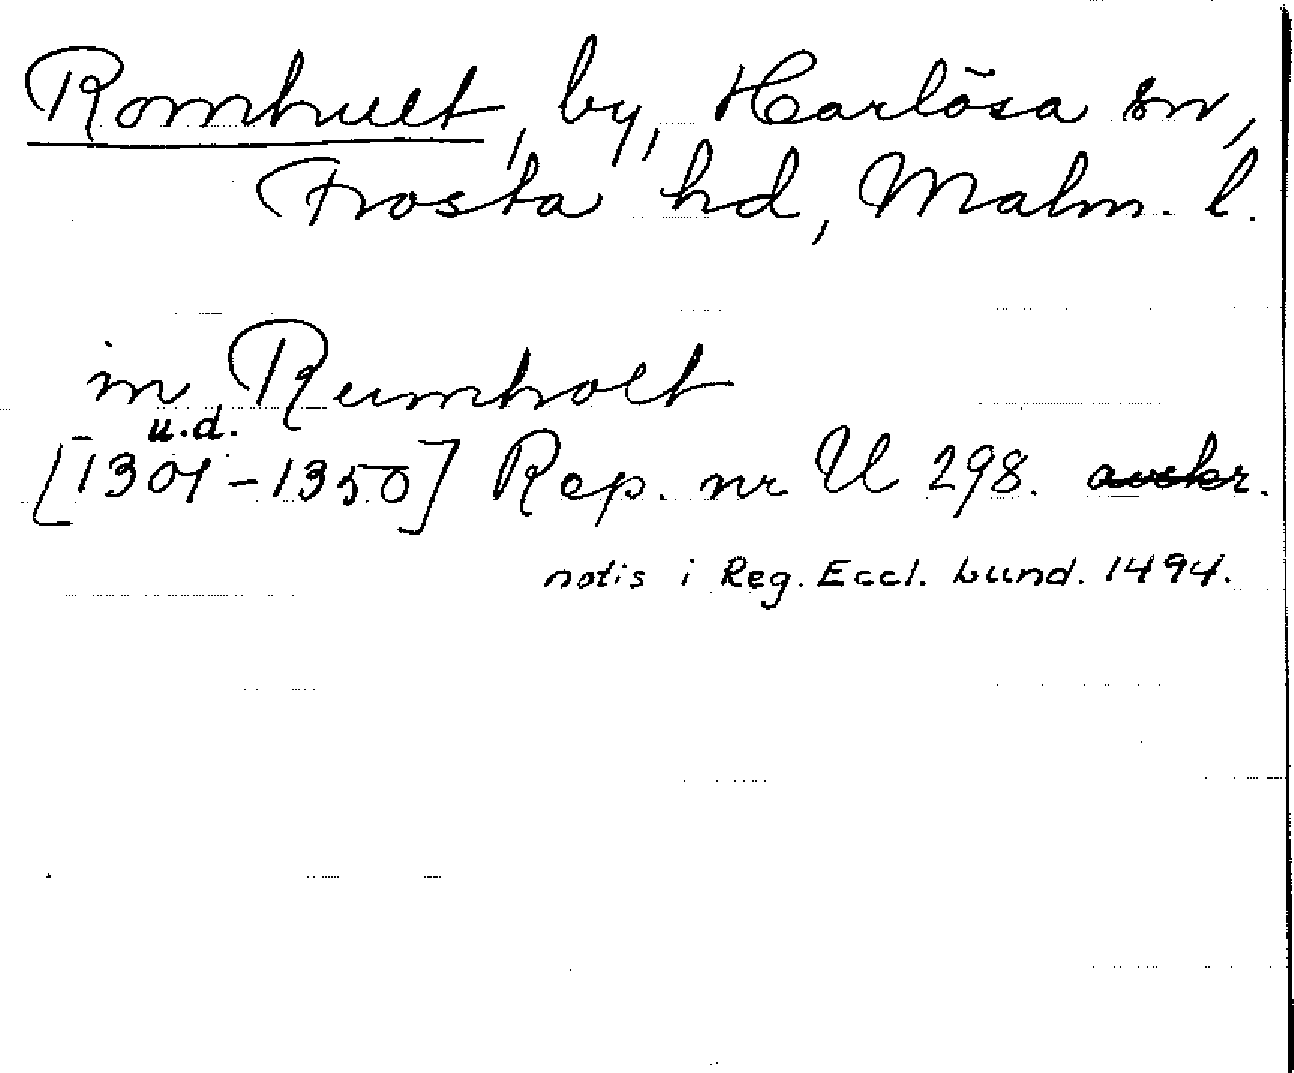 Romhult, by, Harlösa sn,
Frosta hd, Malm. l.
in Rumholt
u.d.
[1301-1350] Rep. nr U 298. avskr.
notis i Reg. Eccl. Lund. 1494.